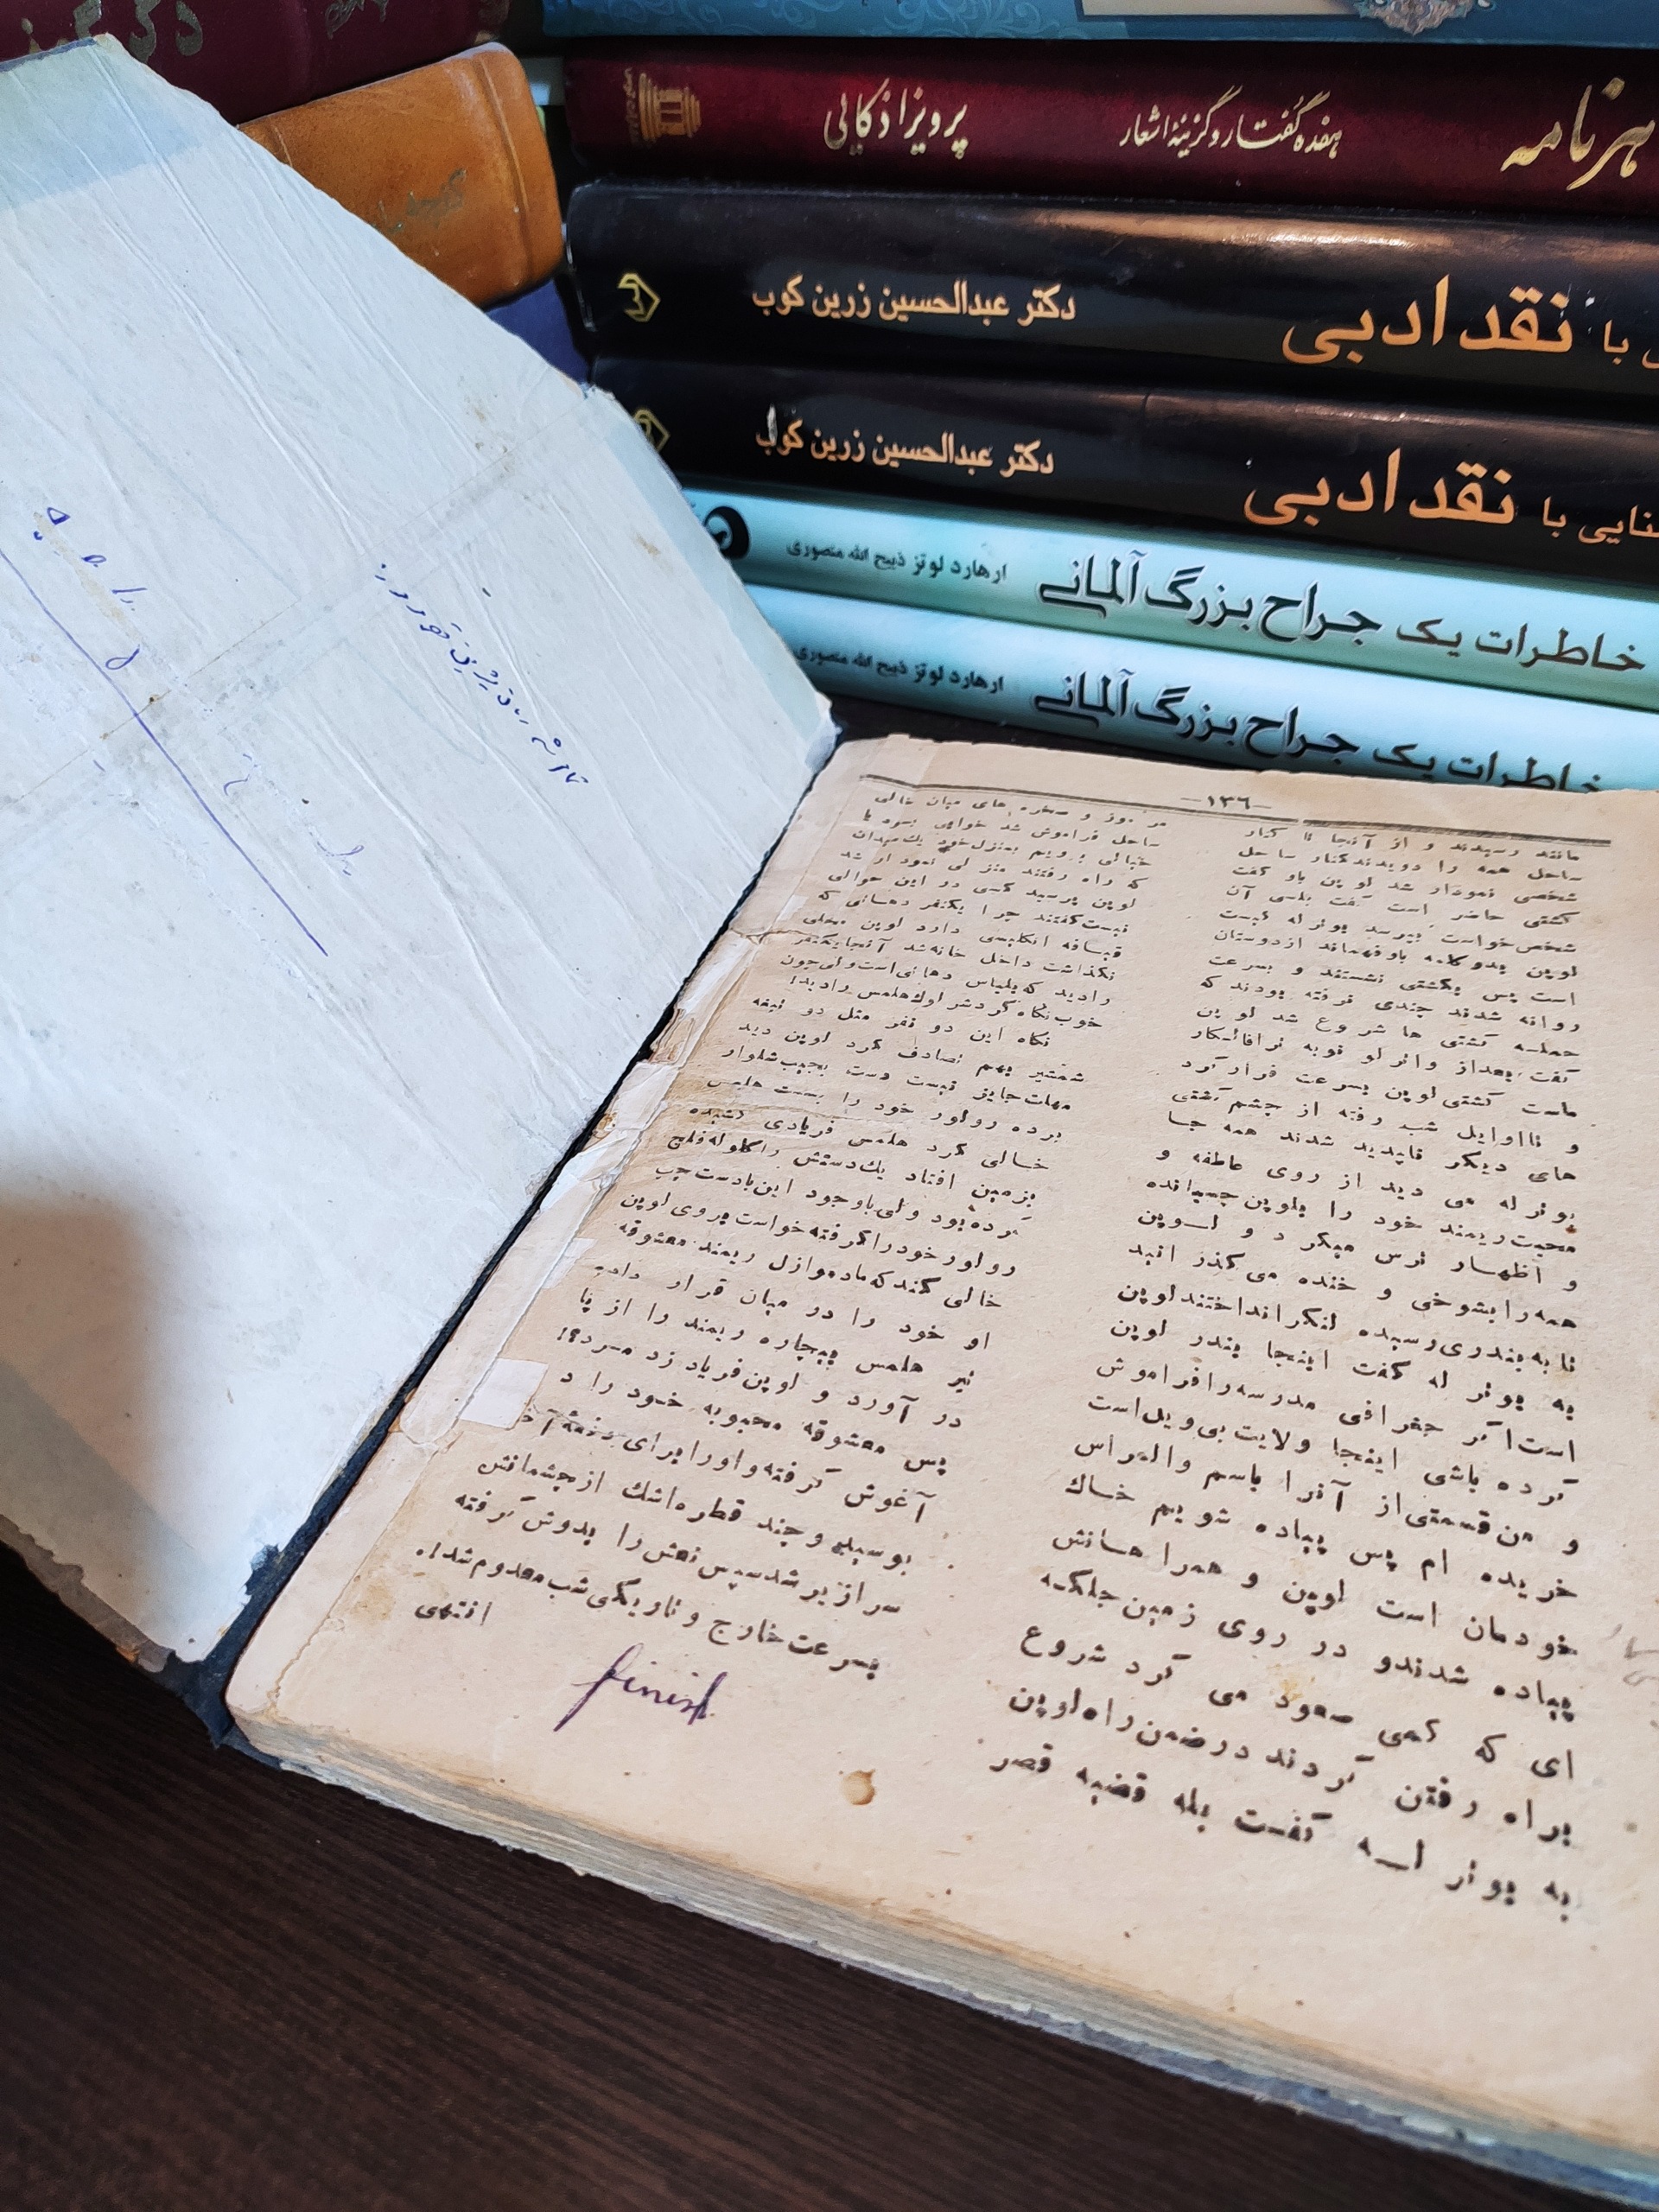 پرویز اذکائی
هفده گفتار و گزینهٔ اشعار
هنرنامه
دکتر عبدالحسین زرین کوب
با نقد ادبی
دکتر عبدالحسین زرین کوب
نایی با نقد ادبی
ارهارد لوتز ذبیح الله منصوری
خاطرات یک جراح بزرگ آلمانی
ارهارد لوتز ذبیح الله منصوری
خاطرات یک جراح بزرگ آلمانی
—۱۳۶—
مانند رسیدند و از آنجا تا کنار
ساحل همه را دویدند کنار ساحل
شخصی نمودار شد لوپن باو گفت
کشتی حاضر است گفت بلسی آن
شخص خواست بپرسد بوتر له کیست
لوپن بدو کلمه باو فهماند از دوستان
است پس بکشتی نشستند و بسرعت
روانه شدند چندی نرفته بودند که
حمله کشتی ها شروع شد لوپن
گفت بعد از واترلو نوبه ترافالکار
ماست کشتی لوپن بسرعت فرار کرد
و تا اوایل شب رفته از چشم کشتی
های دیگر ناپدید شدند همه جا
بوتر له می دید از روی عاطفه و
محبت ریمند خود را بلوپن چسبانده
و اظهار ترس میکرد و لوپن
همه را بشوخی و خنده می گذرانید
تا به بندری رسیده لنگر انداختند لوپن
به بوتر له گفت اینجا بندر لوپن
است اگر جغرافی مدرسه را فراموش
کرده باشی اینجا ولایت بی ویل است
و من قسمتی از آنرا باسم والمراس
خریده ام پس پیاده شویم خاك
خودمان است لوپن و همراهانش
پیاده شدند و در روی زمین جلگه
ای که کمی صعود می کرد شروع
براه رفتن کردند در ضمن راه لوپن
به بوتر له گفت بله قضیه قصر
مرموز و صخره های میان خالی
ساحل فراموش شد خواهی بسوه با
خیالی برویم بمنزل خود یك میدان
که راه رفتند منزلی نمودار شد
لوپن پرسید کسی در این حوالی
نیست گفتند چرا یکنفر دهاتی که
قیافه انگلیسی دارد لوپن محلی
نگذاشت داخل خانه شد آنجا یکنفر
را دید که بلباس دهاتی است ولی چون
خوب نگاه کرد شرلوك هلمس را دید!
نگاه این دو نفر مثل دو تیغه
شمشیر بهم تصادف کرد لوپن دید
مهلت جایز نیست دست بجیب شلوار
برده رولور خود را بسمت هلمس
خالی کرد هلمس فریادی کشیده
بزمین افتاد یك دستش را گلوله فلج
کرده بود ولی باوجود این با دست چپ
رولور خود را گرفته خواست بروی لوپن
خالی کند که مادموازل ریمند معشوقه
او خود را در میان قرار داده
تیر هلمس بیچاره ریمند را از پا
در آورد و لوپن فریاد زد مرد؟!
پس معشوقه محبوبه خود را در
آغوش گرفته و او را برای دفعه آخر
بوسیده و چند قطره اشك از چشمانش
سرازیر شد سپس نعش را بدوش گرفته
بسرعت خارج و تاریکی شب معدوم شد!.
انتهی
finish